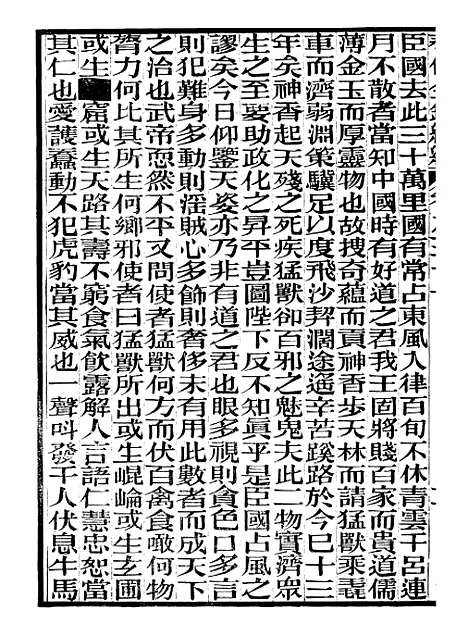 臣國去此三十萬里國有常占東風入律百旬不休青雲千呂連
月不散者當知中國時有好道之君我王固將賤百家而貴道儒
薄金玉而厚靈物也故搜奇蘊而貢神香步天林而請猛獸乘毳
車而濟弱淵策驥足以度飛沙契濶途遥辛苦蹊路於今巳十三
年矣神香起夭殘之死疾猛獸卻百邪之魅鬼夫此二物實濟衆
生之至要助政化之昇平豈圖陛下反不知眞乎是臣國占風之
謬矣今日仰鑒天姿亦乃非有道之君也眼多視則貪色口多言
則犯難身多動則淫賊心多飾則奢侈未有用此數者而成天下
之治也武帝恧然不平又問使者猛獸何方而伏百禽食噉何物
膂力何比其所生何鄉邪使者曰猛獸所出或生崐崘或生玄圃
或生窟或生天路其壽不窮食氣飲露解人言語仁慧忠恕當
其仁也愛護蠢動不犯虎豹當其威也一聲呌發千人伏息牛馬